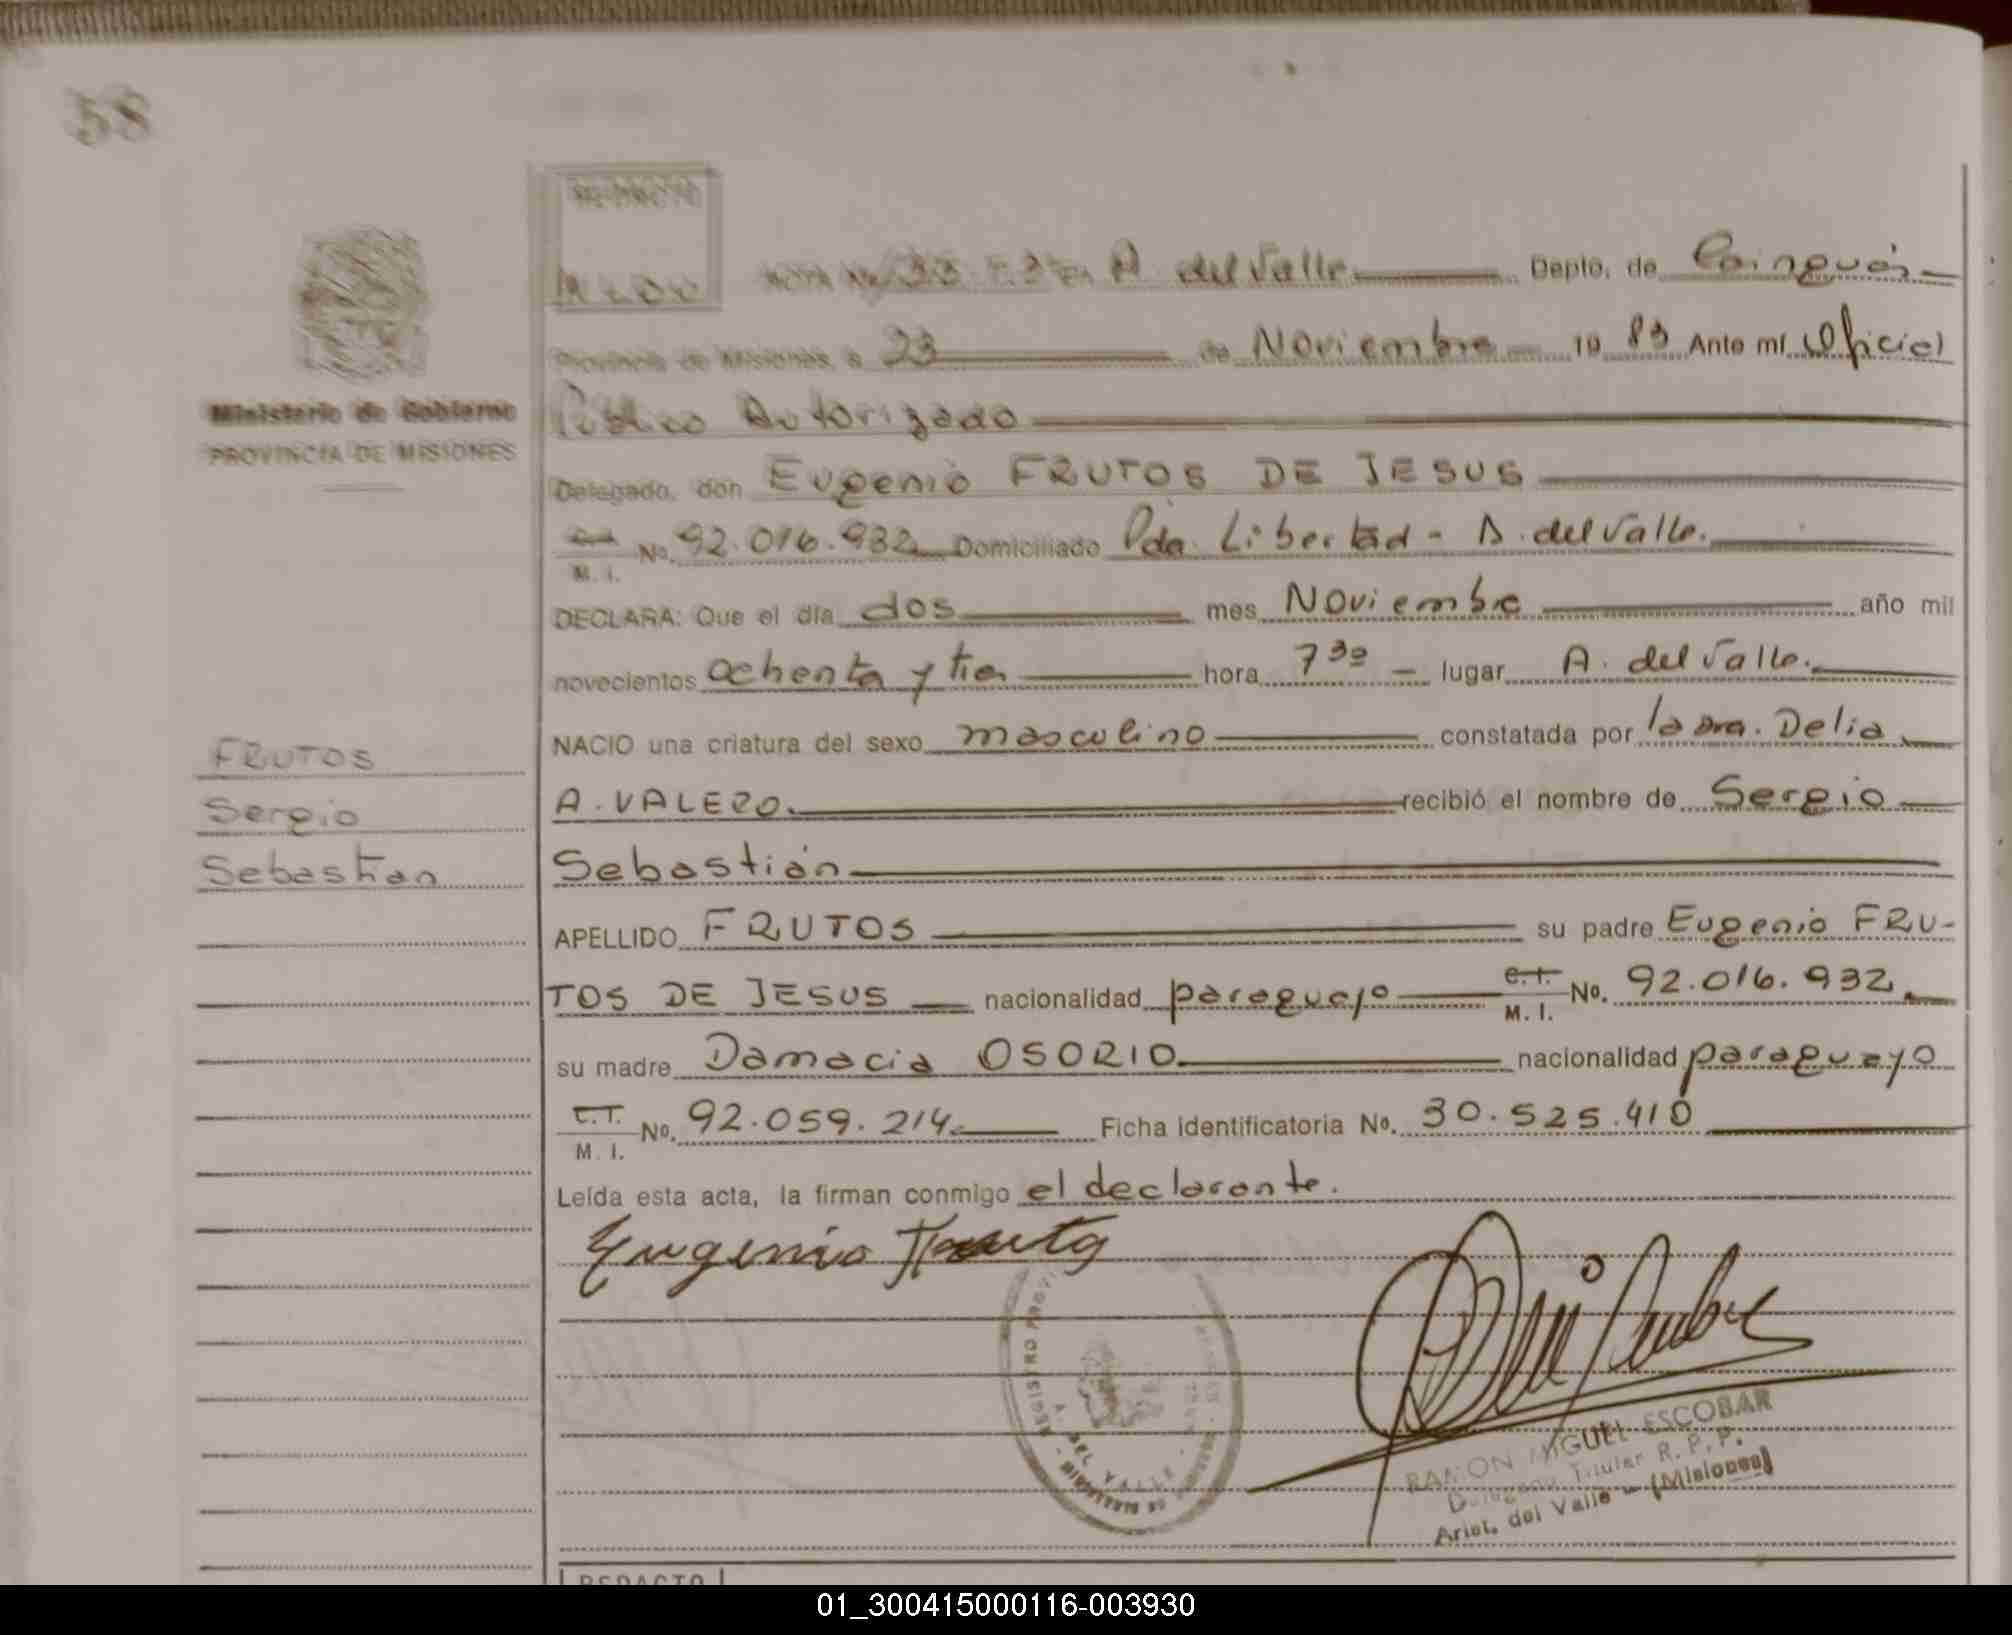 58
REDACTO
ACTA No 33 T.3º En A. del Valle Depto. de Cainguás
Ministerio de Gobierno
PROVINCIA DE MISIONES
Provincia de Misiones, a 23 de Noviembre 19 83 Ante mí Oficial
Público Autorizado
Delegado, don Eugenio FRUTOS DE JESUS
No. 92.016.932 Domiciliado Pda. Libertad - A. del Valle.
M. I.
DECLARA: Que el día dos mes Noviembre año mil
novecientos ochenta y tres hora 7 30 - lugar A. del Valle.
NACIO una criatura del sexo masculino constatada por la sra. Delia
A. VALERO. recibió el nombre de Sergio
Sebastián
FRUTOS
Sergio
Sebastian
APELLIDO FRUTOS su padre Eugenio FRU-
TOS DE JESUS nacionalidad paraguayo C.I. No. 92.016.932.
M. I.
su madre Damacia OSORIO nacionalidad paraguayo
C.I. No. 92.059.214. Ficha identificatoria No. 30.525.410
M. I.
Leída esta acta, la firman conmigo el declarante.
Eugenio Fruto
REGISTRO PROV
A. DEL VALLE
RAMON MIGUEL ESCOBAR
Delegado Titular R. P. P.
Arist. del Valle - (Misiones)
REDACTO
01_300415000116-003930